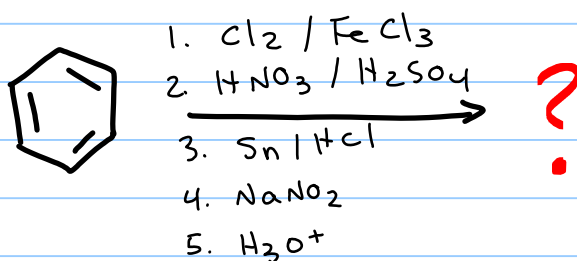 1. Cl2 / FeCl3
2. HNO3 / H2SO4
?
3. Sn / HCl
4. NaNO2
5. H3O+